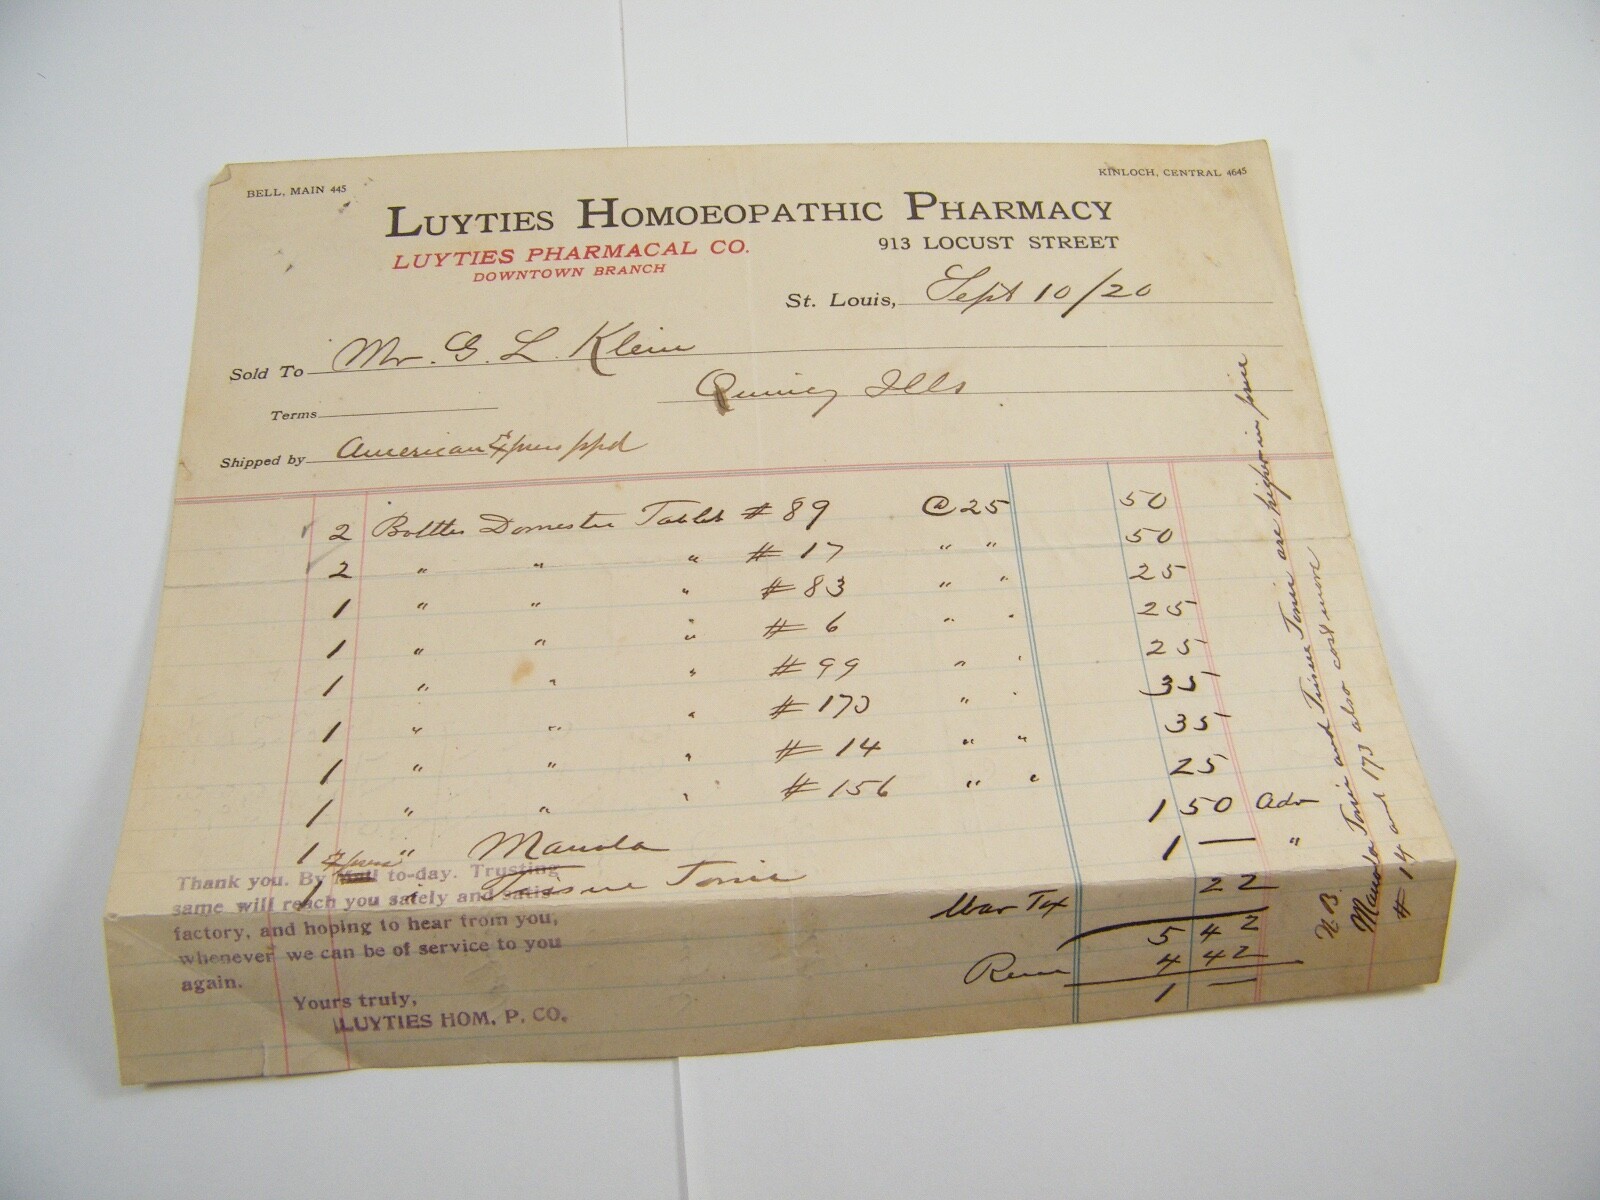 BELL, MAIN 445
KINLOCH, CENTRAL 4645
LUYTIES HOMOEOPATHIC PHARMACY
LUYTIES PHARMACAL CO.
913 LOCUST STREET
DOWNTOWN BRANCH
St. Louis, Sept 10/20
Sold To Mr. G. L. Klein
Terms Quincy Ills
Shipped by American Express ppd
2 Bottles Domestic Tablets # 89 @ 25 50
2 " " " # 17 " " 50
1 " " " # 83 " " 25
1 " " " # 6 " " 25
1 " " " # 99 " " 25
1 " " " # 173 " 35
1 " " " # 14 " " 35
1 " " " # 156 " " 25
1 " Manola 1 50 Adv
1 " Tissue Tonic 1 — "
War Tax 22
5 42
4 42
1 —
Thank you. By Mail Express to-day. Trusting
same will reach you safely and satis-
factory, and hoping to hear from you,
whenever we can be of service to you
again.
Yours truly,
LUYTIES HOM. P. CO.
N.B.
Manola Tonic and Tissue Tonic are higher in price
# 14 and 173 also cost more